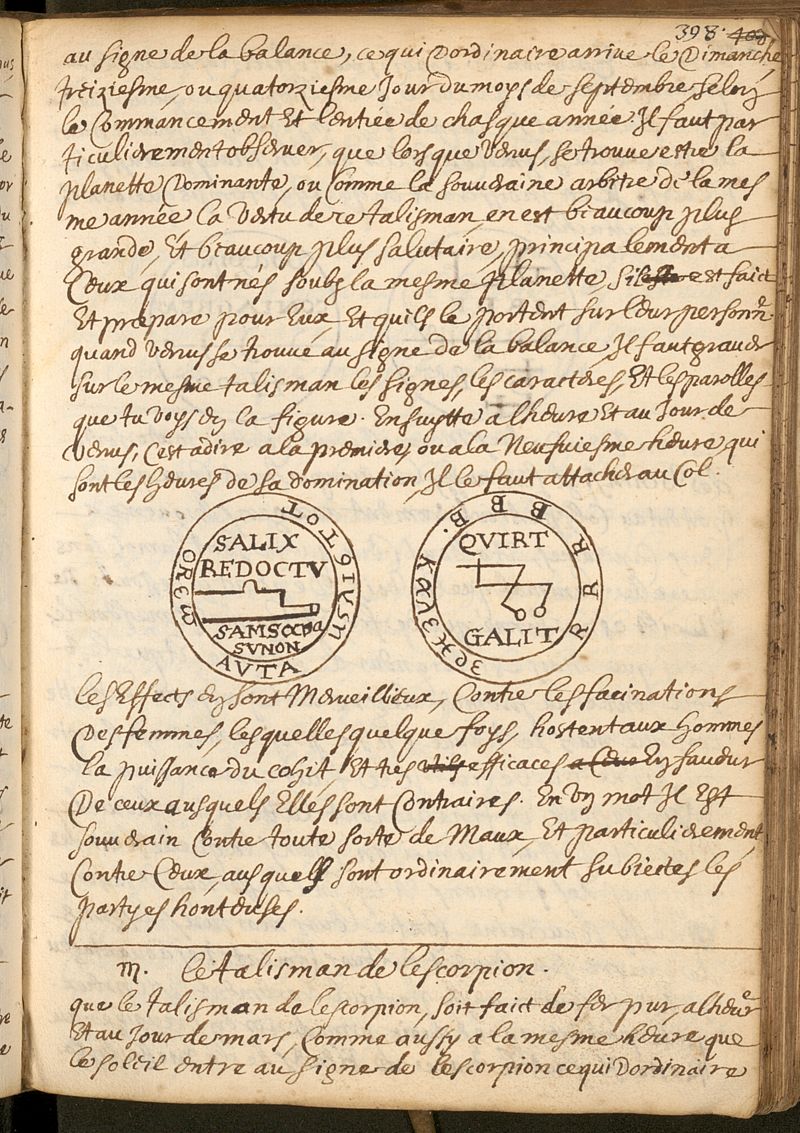 398. 400
au signe de la balance, ce qui Dordinaire arrive le Dimanche
treiziesme, ou quatorziesme Jour du moys de septembre selon
le Commancement Et lentrée de chasque année. Il faut par
ticulierement observer, que lorsque Venus, se trouve estre la
planette Dominante, ou Comme la souveraine arbitre de la mes
me année la Vertu de ce talisman, en est beaucoup plus
grande, Et beaucoup plus salutaire, principalement a
Ceux qui sont nés soubs la mesme planette, sil est faict
Et prepare pour Eux, Et quils le portent sur leur personne
quand Venus se trouve au signe de la balance Il faut graver
sur le mesme talisman les signes, les caracteres, Et les parolles
que tu Voys en la figure. Ensuytte a lheure Et au Jour de
Venus, Cest adire a la premiere, ou a la Neufviesme heure qui
sont les heures de sa domination, Il le faut attacher au Col.
TOT
OREM
SALIX
REDOCTV
SAMSO
SVNON
AVTA
B B B B.
R R R
QVIRT
GALIT
les Effects en sont Merveilleux, Contre les facinations
Des femmes, lesquelles quelque foys, hostent aux Hommes
la puissance du cohit, Et tres utils efficaces a Ceux En faveur
De ceux ausquels Elles sont Contraires. En un mot Il Est
souverain Contre toute sorte de Maux, Et particulierement
Contre Ceux, ausquels sont ordinairement subiectes les
partyes honteuses.
♏. le talisman de lescorpion.
que le talisman de lescorpion, soit faict de fer pur, a lheure
Et au Jour de mars, Comme aussy a la mesme heure que
le soleil entre au signe de lescorpion ce qui Dordinaire